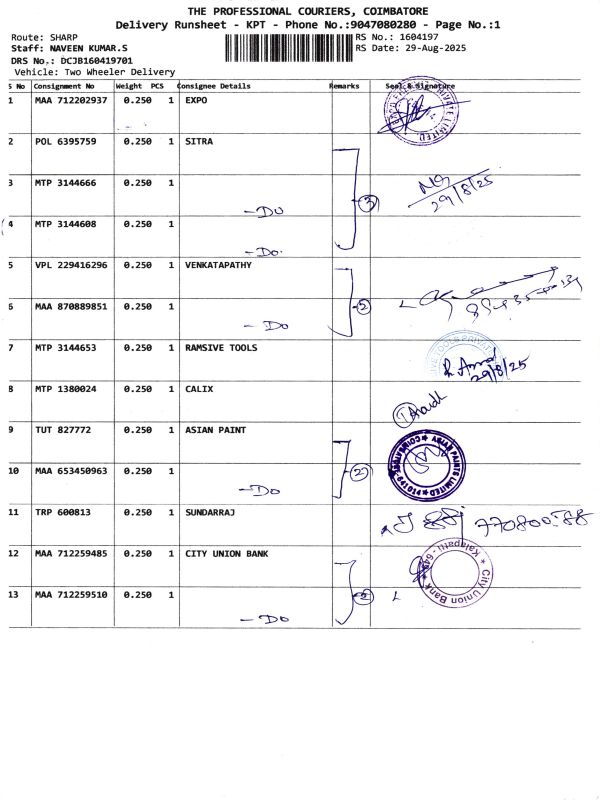 THE PROFESSIONAL COURIERS, COIMBATORE
Delivery Runsheet - KPT - Phone No.:9047080280 - Page No.:1
Route: SHARP
RS No.: 1604197
Staff: NAVEEN KUMAR.S
RS Date: 29-Aug-2025
DRS No.: DCJB160419701
Vehicle: Two Wheeler Delivery
S No Consignment No Weight PCS Consignee Details Remarks Seal & Signature
1 MAA 712202937 0.250 1 EXPO
2 POL 6395759 0.250 1 SITRA
3 MTP 3144666 0.250 1
-DO
3
29/8/25
4 MTP 3144608 0.250 1
-DO.
5 VPL 229416296 0.250 1 VENKATAPATHY
6 MAA 870889851 0.250 1
-DO
2
7 MTP 3144653 0.250 1 RAMSIVE TOOLS
29/8/25
8 MTP 1380024 0.250 1 CALIX
9 TUT 827772 0.250 1 ASIAN PAINT
ASIAN PAINTS LIMITED
10 MAA 653450963 0.250 1
-DO
2
11 TRP 600813 0.250 1 SUNDARRAJ
12 MAA 712259485 0.250 1 CITY UNION BANK
City Union Bank
13 MAA 712259510 0.250 1
-DO
2